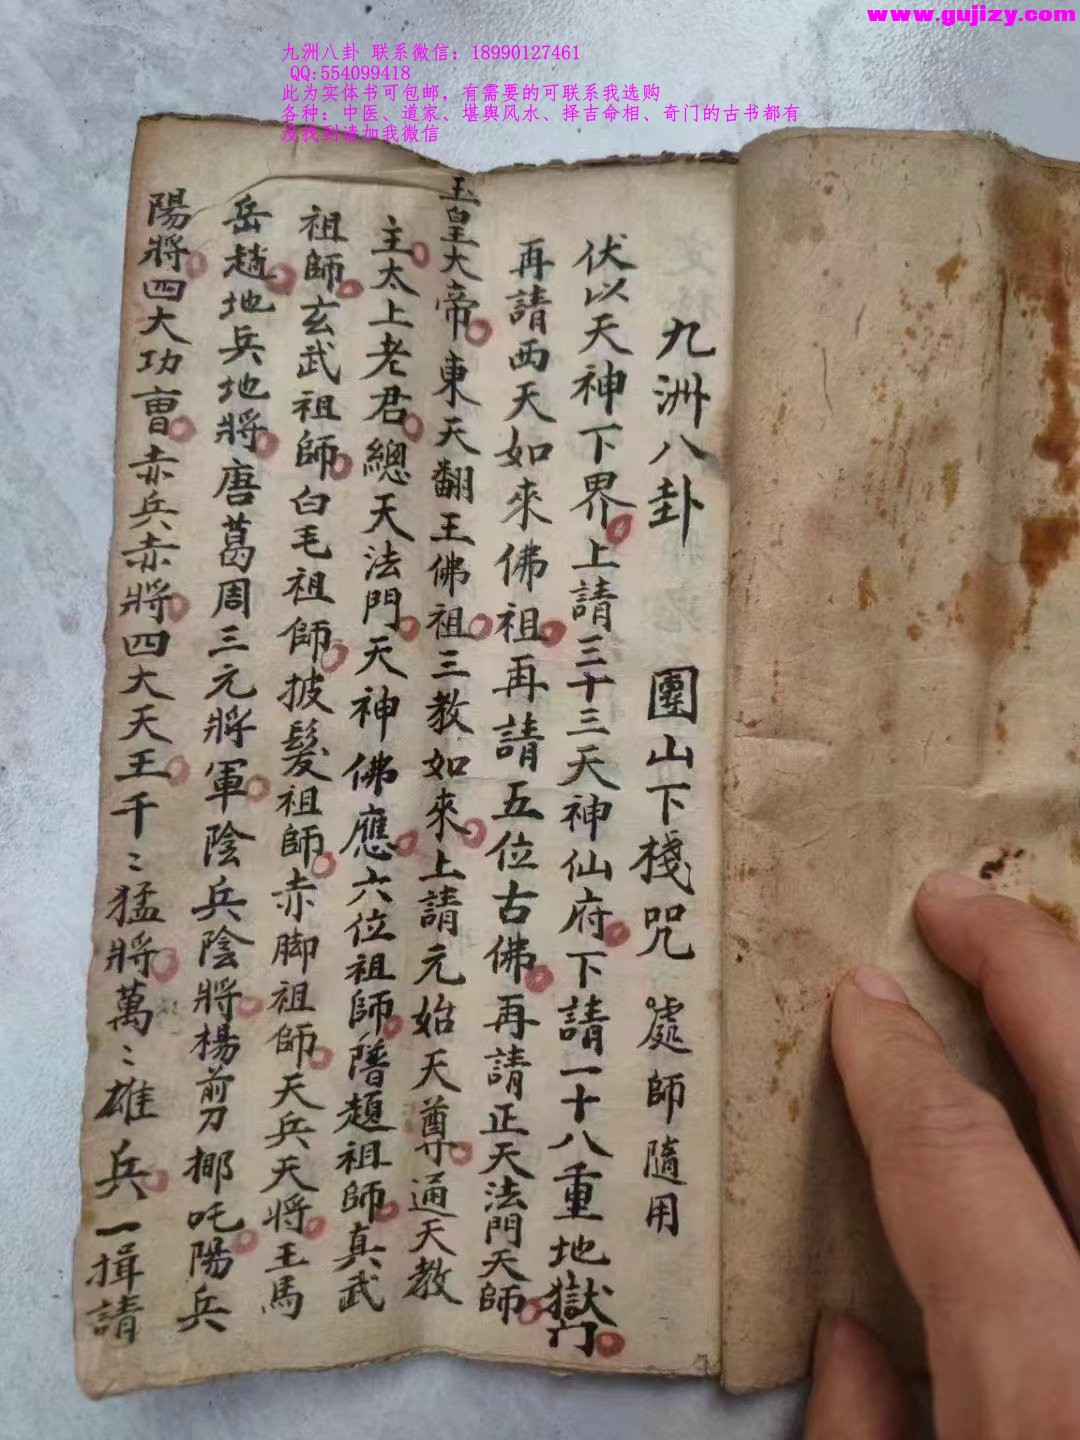 www.gujizy.com
九洲八卦 联系微信：18990127461
QQ:554099418
此为实体书可包邮，有需要的可联系我选购
各种：中医、道家、堪舆风水、择吉命相、奇门的古书都有
没找到请加我微信
九洲八卦 團山下棧咒 處師隨用
伏以天神下界上請三十三天神仙府下請一十八重地獄門
再請西天如來佛祖再請五位古佛再請正天法門天師
玉皇大帝東天翻王佛祖三教如來上請元始天尊通天教
主太上老君總天法門天神佛應六位祖師簷趙祖師真武
祖師玄武祖師白毛祖師披髮祖師赤脚祖師天兵天將王馬
岳趙地兵地將唐葛周三元將軍陰兵陰將楊剪挪吒陽兵
陽將四大功曹赤兵赤將四大天王千〻猛將萬〻雄兵一揖請